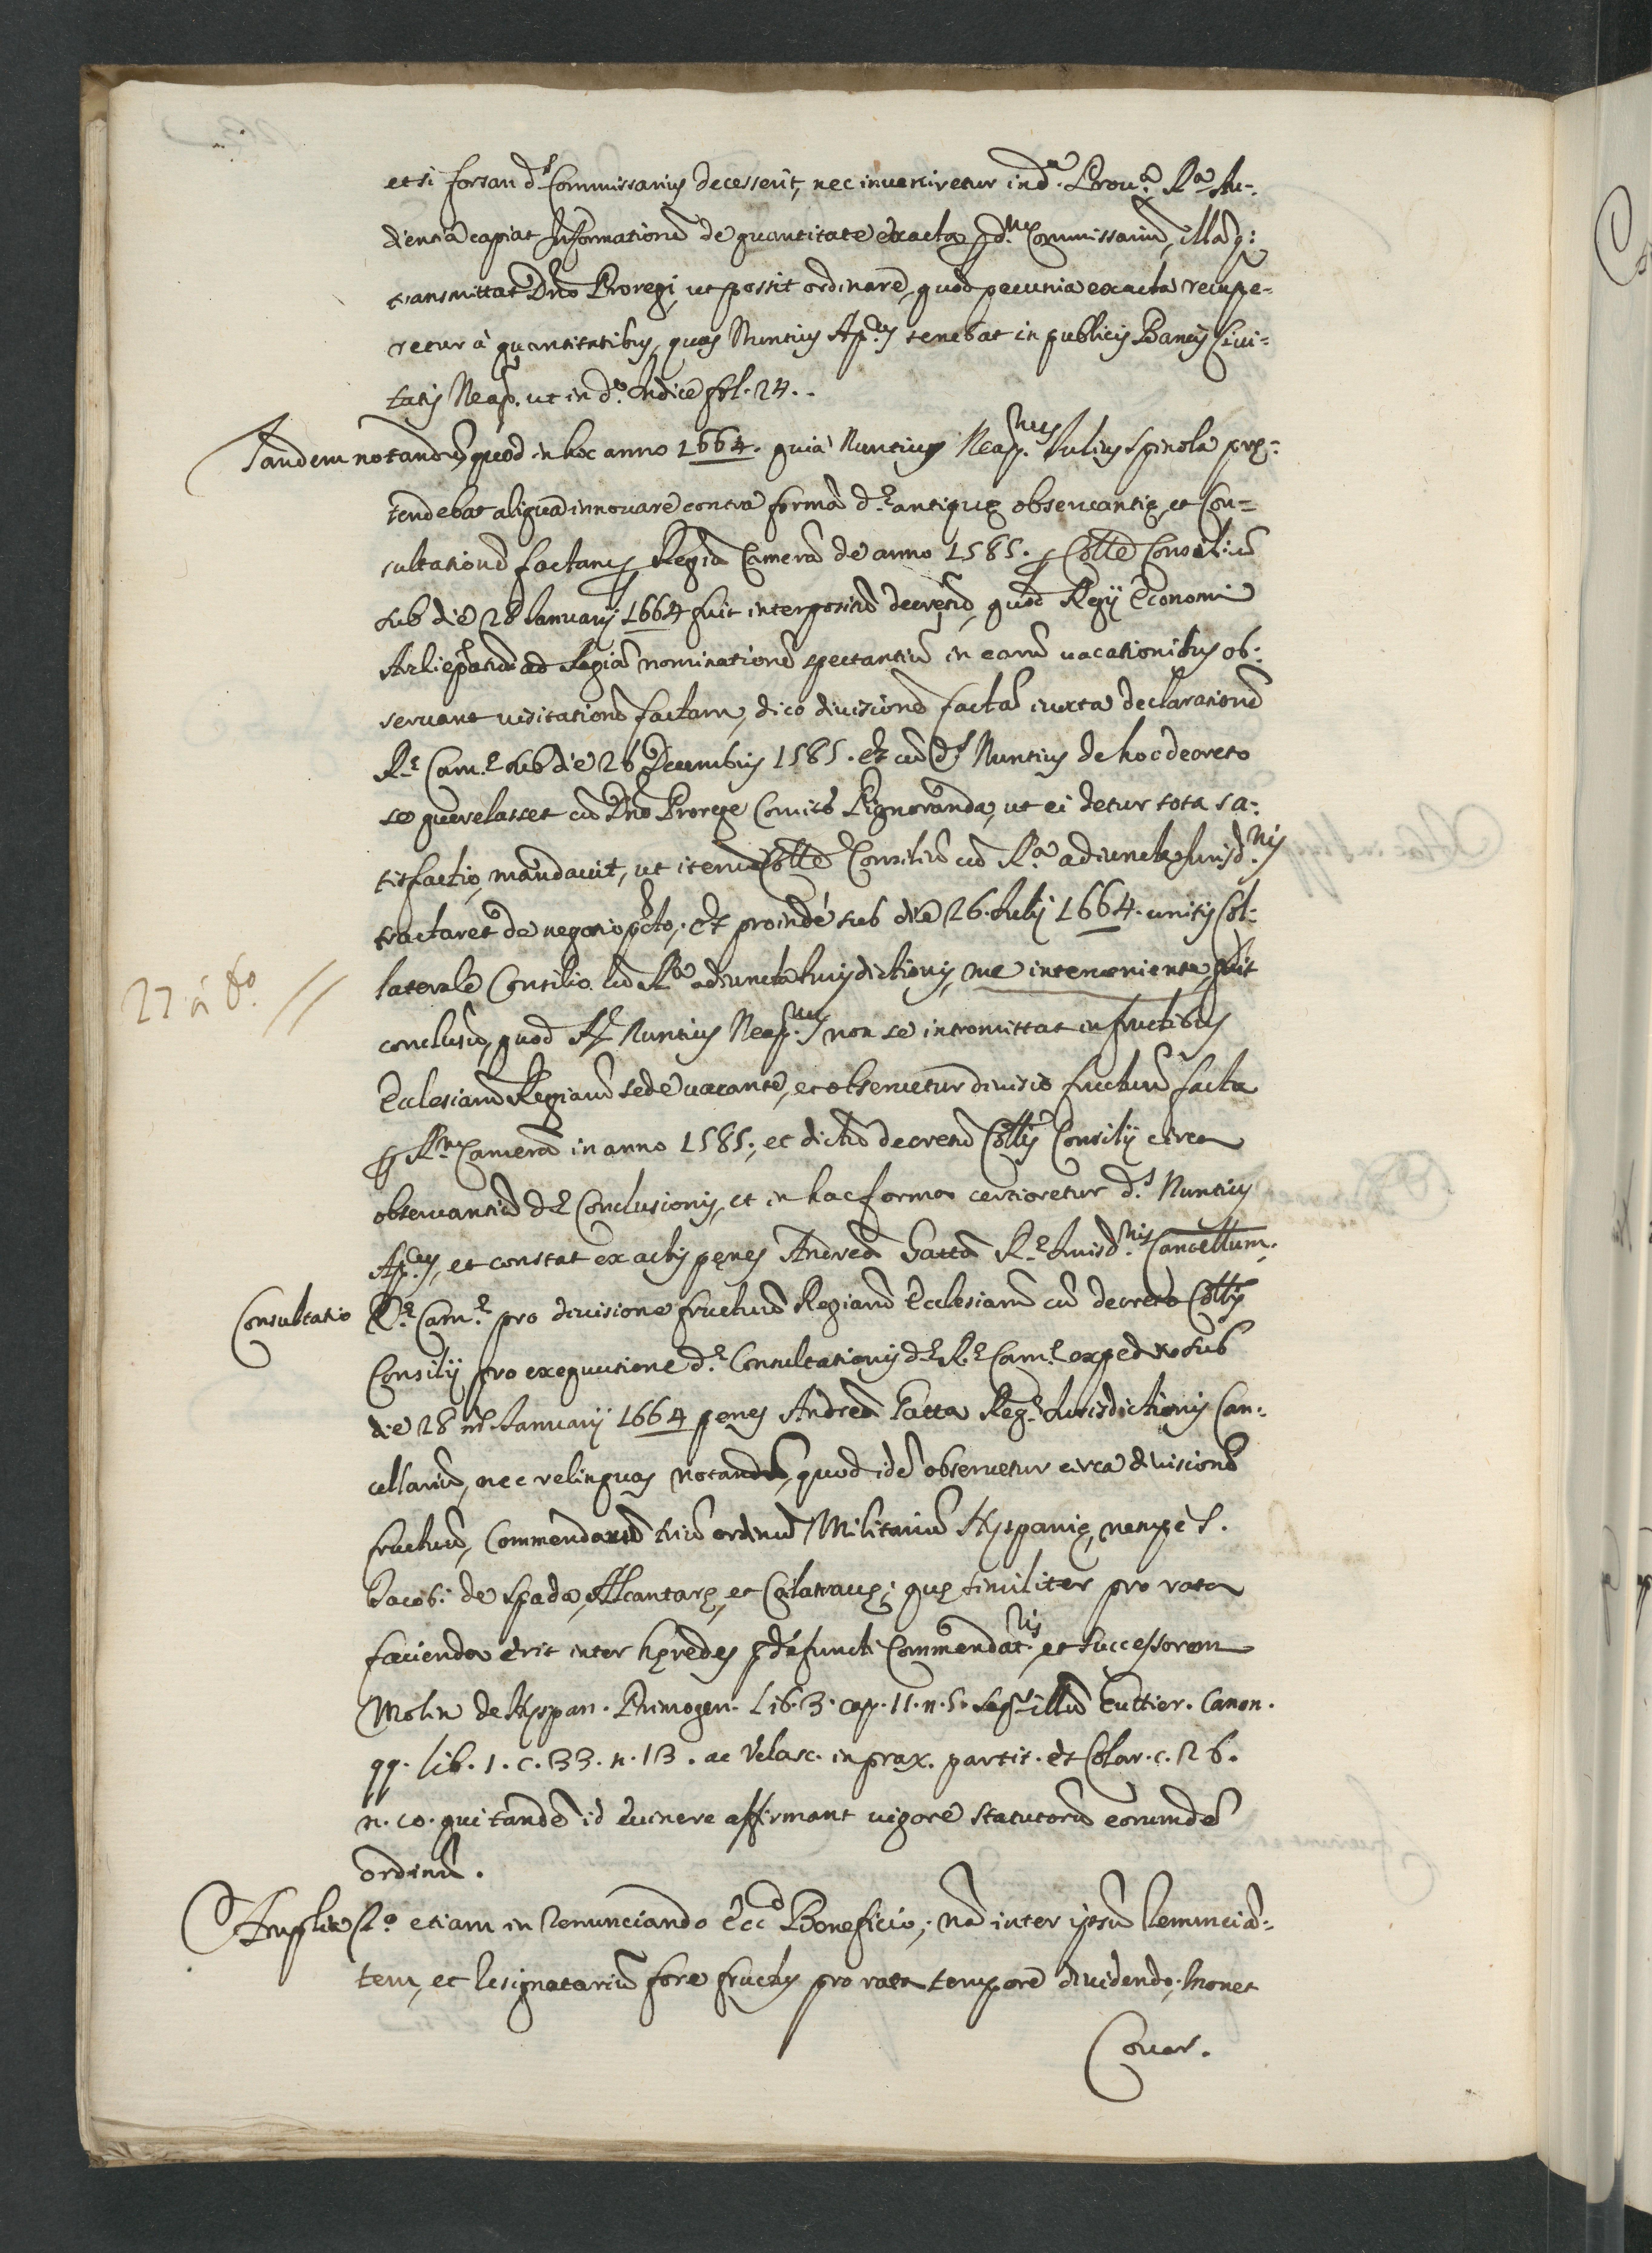 et si forsan d.s Commissarius decesserit, nec inueniretur in d.a Prou.a R.a Au-
dientia capiat Informationē de quantitate exacta p d.m Commissariū, illāq:
transmittat Dno Proregi, ut possit ordinare, quod pecunia exacta recupe-
retur à quantitatibus, quas Nuntius Ap.cus tenebat in publicis Bancis Ciui-
tatis Neap. ut in d.o Indice fol. 24..
Tandem notandū, quod in hoc anno 1664. quia Nuntius Neap.nus Iulius Spinola pre-
tendebat aliqua innouare contra formā d.e antique obseruantie, et Con-
sultationē factam p Regiā Camerā de anno 1585. p Colle Consiliū
sub die 28 Ianuarij 1664 fuit interpositū decretū, quod Regij Economi
Archiepatuū ad Regiā nominationē spectantiū in earū uacationibus ob-
seruant uisitationē factam, dico diuisionē factā iuxta declarationē
R.e Cam.e sub die 26 Decembris 1585. Et cū d.s Nuntius de hoc decreto
se querelasset cū Dno Prorege Comite Pignoranda, ut ei detur tota sa-
tisfactio, mandauit, ut iterū Colle Consiliū cū R.a adiuncta Iurisd.nis
tractaret de negotio pcto, Et proinde sub die 26. Iulij 1664. unitis Col-
laterale Consilio cū R.a adiuncta Iurisdictionis, me interueniente, fuit
27 à to. //
conclusū, quod R. Nuntius Neap.nus non se intromittat in fructibus
Ecclesiarū Regiarū sede uacante, et obseruetur diuisio fructuū facta
p R.m Camerā in anno 1585; et dictū decretū Collis Consilij circa
obseruantiā d.e Conclusionis, et in hac forma certioretur d.s Nuntius
Ap.cus, et constat ex actis penes Andreā Gattā R.e Iurisd.nis Cancellum.
Consultatio R.e Cam.e pro diuisione fructuū Regiarū Ecclesiarū cū decreto Collis
Consilij pro exequutione d.e Consultationis d.e R.e Cam.e expedito sub
die 28 ms. Ianuarij 1664 penes Andreā Gatta Reg.e Iurisdictionis Can-
cellariū, nec relinquas notandū, quod idē obseruetur circa diuisionē
fructuū, Commendarū triū ordinū Militariū Hyspanie, nempè S.
Iacob: de Spada, Alcantare, et Calatraue; que similiter pro rata
facienda erit inter heredes defuncti Commendat.ris et successorem
Molin de Hyspan. Primogen. Lib. 3. cap. 11. n. 5. seq. illū Guttier. Canon.
qq. lib. 1. c. 33. n. 13. ac Velasc. in prax. partit. et Colar. c. 26.
n. 10. qui tandē id euinere affirmant uigore statutorū eorumdē
ordinū.
Amplia 2.o etiam in renunciando Ecc.o Beneficio; nā inter ipsū renunciā-
tem, et resignatariū fore fructus pro rata tempore diuidendo, monet
Couar.